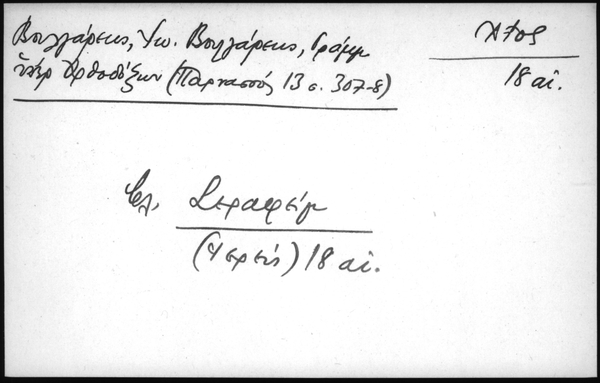 Βουλγάρεως, Ἰω. Βουλγάρεως, Γράμμ
ὑπέρ Ὀρθοδόξων (Παρνασσός 13 σ. 307-8)
18 αἰ.
βλ. Σεραφείμ
(Ἱερεύς) 18 αἰ.